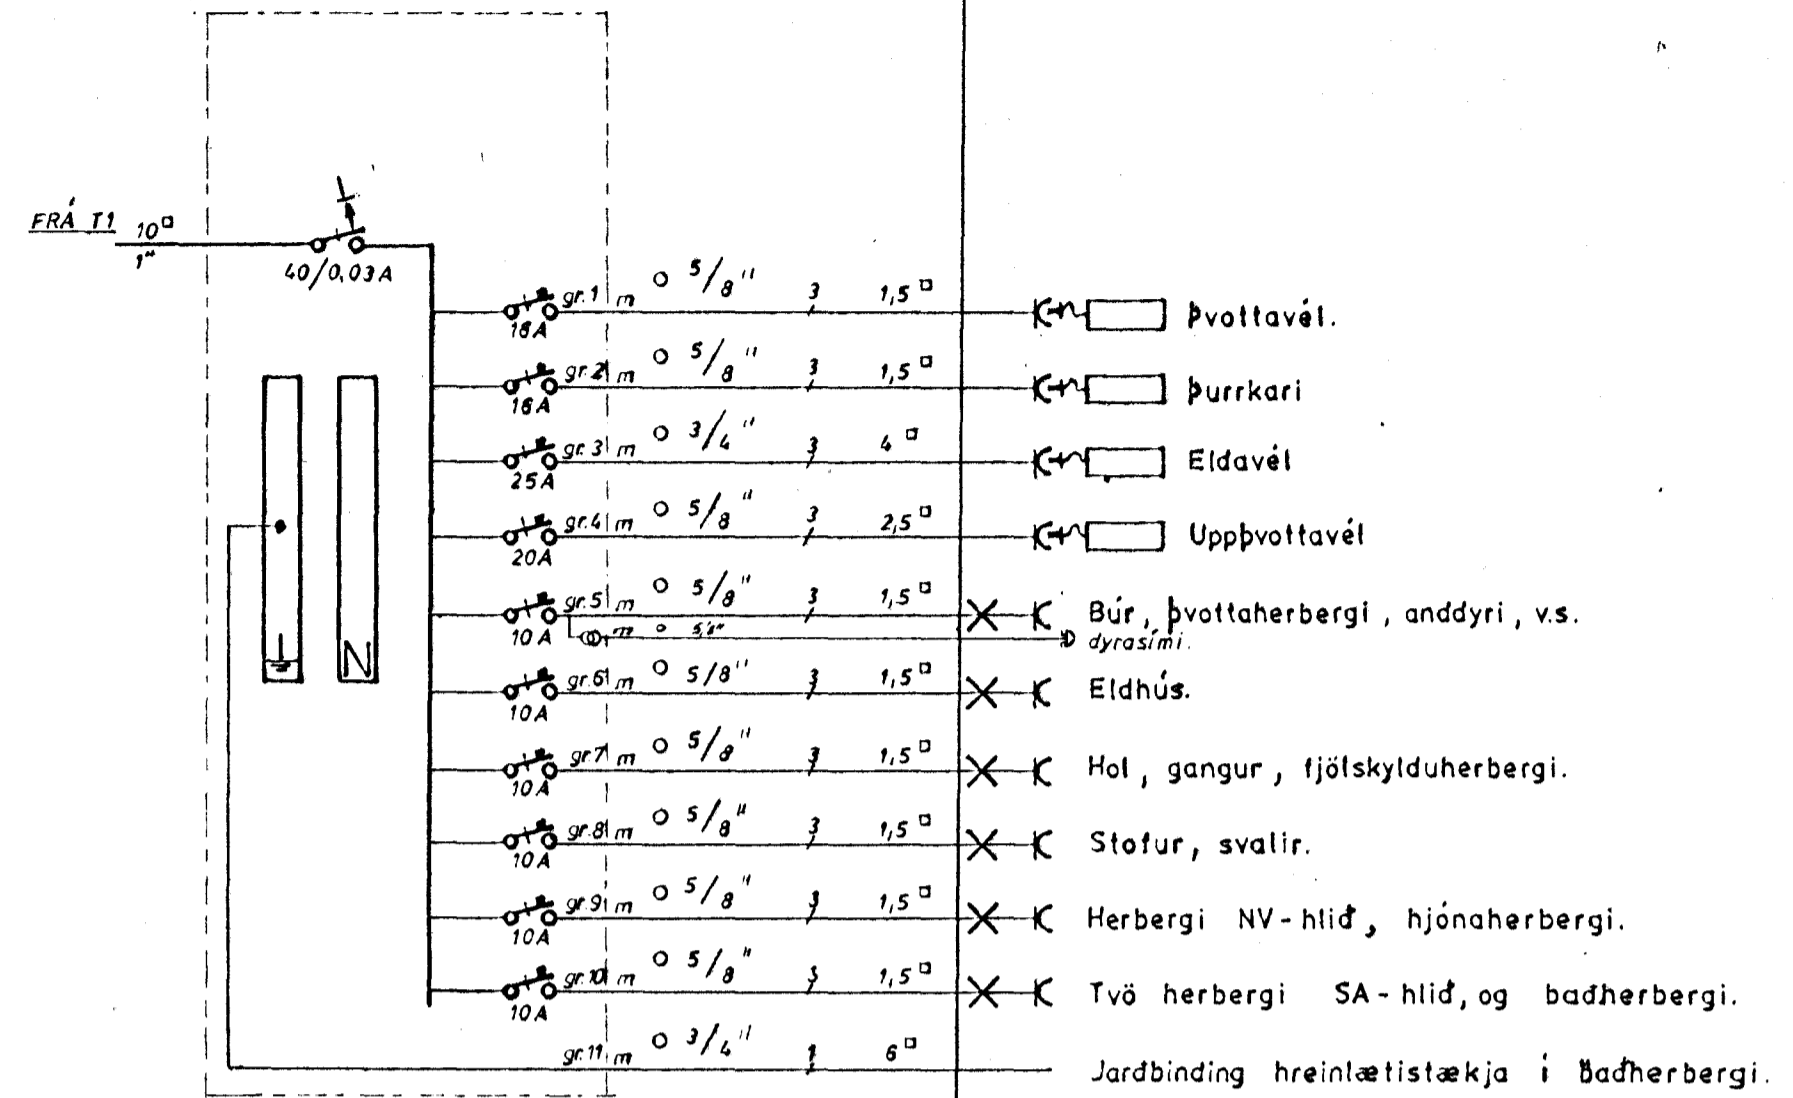 FRÁ T1 10□
1"
40/0,03A
gr.1 m ○ 5/8" 3 1,5□ Þvottavél.
16A
gr.2 m ○ 5/8" 3 1,5□ Þurrkari
16A
gr.3 m ○ 3/4" 3 4□ Eldavél
25A
gr.4 m ○ 5/8" 3 2,5□ Uppþvottavél
20A
gr.5 m ○ 5/8" 3 1,5□ Búr, þvottaherbergi, anddyri, v.s.
10A m ○ 5/8" dyrasími.
gr.6 m ○ 5/8" 3 1,5□ Eldhús.
10A
N
gr.7 m ○ 5/8" 3 1,5□ Hol, gangur, fjölskylduherbergi.
10A
gr.8 m ○ 5/8" 3 1,5□ Stofur, svalir.
10A
gr.9 m ○ 5/8" 3 1,5□ Herbergi NV-hlið, hjónaherbergi.
10A
gr.10 m ○ 5/8" 3 1,5□ Tvö herbergi SA-hlið, og baðherbergi.
10A
gr.11 m ○ 3/4" 1 6□ Jarðbinding hreinlætistækja í baðherbergi.